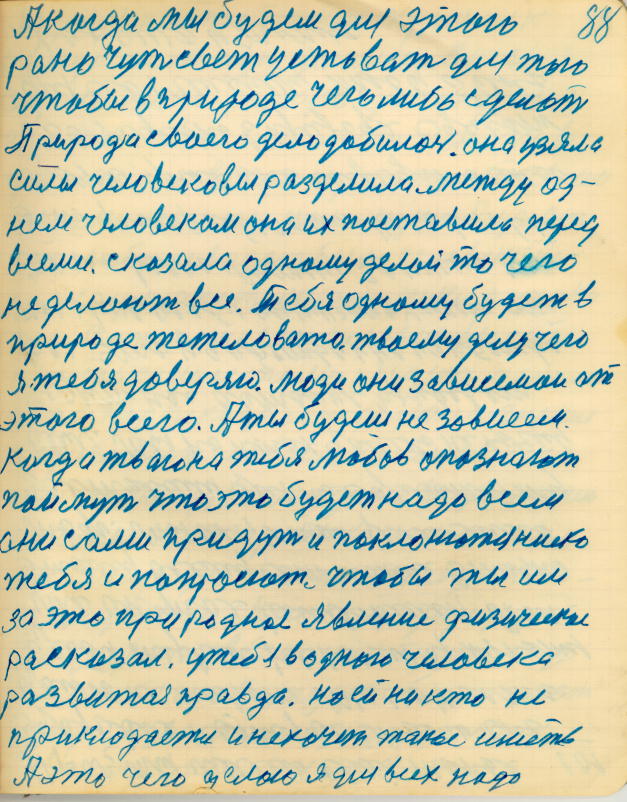 88
А когда мы будем для этого
рано чут свет устават для того
чтобы в природе чего либо сделоть
Природа своего дело добилас. она узяла
силы человековы разделила. между од-
нем человеком она их поставила перед
всеми. сказала одному делай то чего
не делоют все. Тебя одному будет в
природе тежеловато. твоему делу чего
я тебя доверяю. люди они зависемои от
этого всего. А ты будеш не зовисем.
когда твогона тебя любов опознают
поймут что это будет надо всем
они сами придут и поклонютя ниско
тебя и попросют. чтобы ты им
за это природное явление физическое
расказал. у тебя водного человека
развитая правда. но ей никто не
приклодается и нехочит такое иметь
А это чего делою я для всех надо